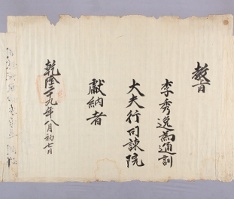 敎旨
李秀逸爲通訓
大夫行司諫院
獻納者
乾隆十九年八月初七日